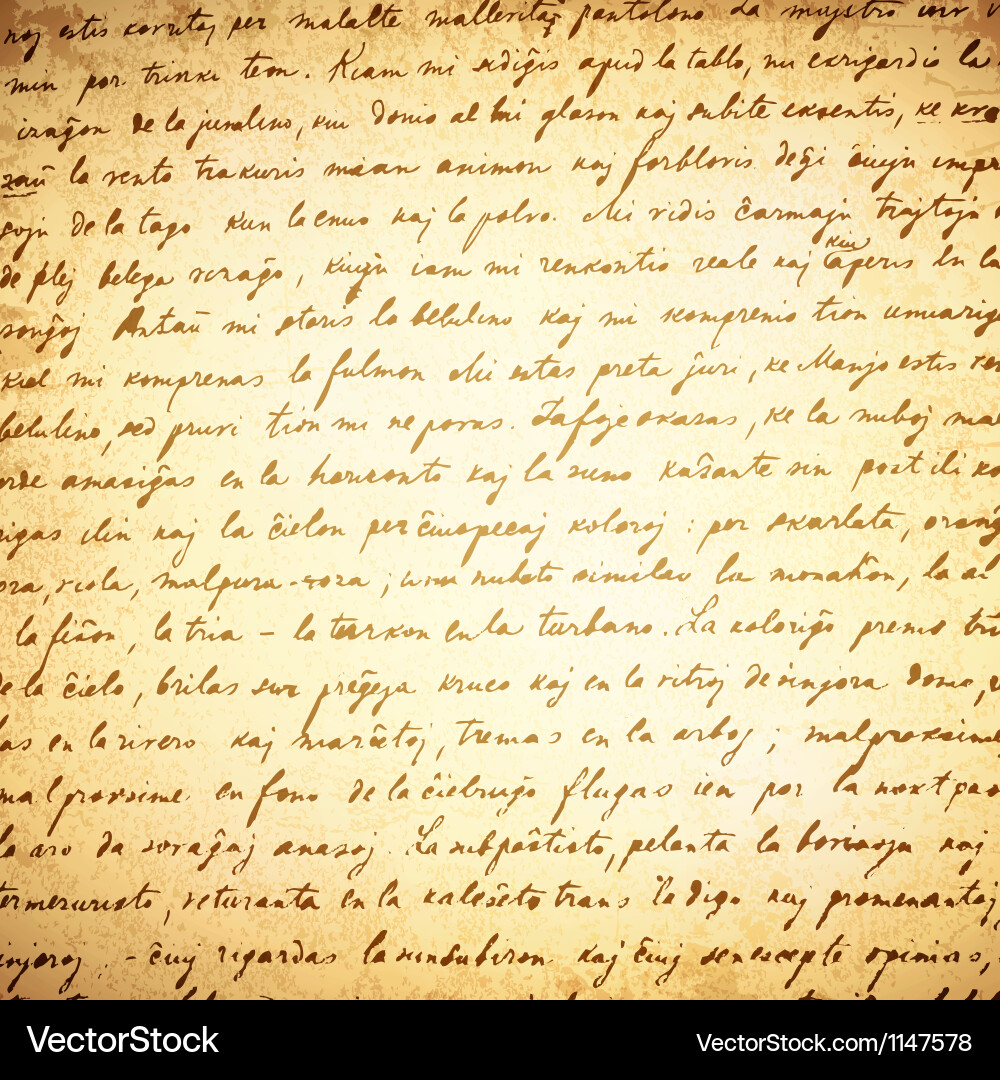 estis per malalte da
min por trinki teon. Kiam mi sidiĝis apud la tablo, mi ekrigardis la
de la junulino, kiu donis al mi glason kaj subite eksentis, ke
la vento trakuris mian animon kaj forblovis deĝi ĉiujn impre
sojn de la tago kun la enuo kaj la polvo. Mi vidis ĉarmajn trajtojn
de plej belega vizaĝo, kiujn iam mi renkontis reale kaj kiu aperis en la
sonĝoj Antaŭ mi staris la belulino kaj mi komprenis tion unuariga
kiel mi komprenas la fulmon Mi estas preta ĵuri, ke Manjo estis
belulino, sed pruvi tion mi ne povas. Iafoje okazas, ke la nuboj mal
orde amasiĝas en la horizonto kaj la suno kaŝante sin post ili ko
rigas ilin kaj la ĉielon per ĉiuspecaj koloroj : per skarlata, oranĝ
viola, malpura-roza ; unu nubeto similas la monaĥon, la al
la fiŝon, la tria - la turkon en la turbano. La koloriĝo premis tri
de la ĉielo, brilas sur preĝeja kruco kaj en la vitroj de sinjora domo,
as en la rivero kaj marĉetoj, tremas en la arboj ; malproksime
malproksime en fono de la ĉielruĝo flugas ien por la noktpaŝo
la aro da sovaĝaj anasoj. La subpaŝtisto, pelanta la bovinojn kaj
termezuristo, veturanta en la kaleŝeto trans la digo kaj promenantaj
injoroj - ĉiuj rigardas la sunsubiron kaj ĉiuj senescepte opinias,
VectorStock VectorStock.com/1147578